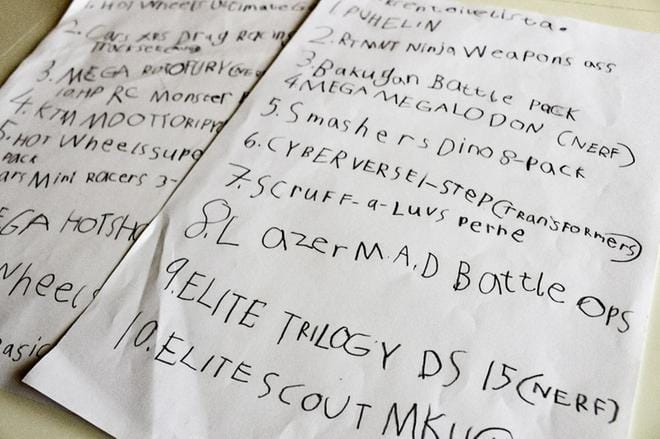 1. HOT Wheels Ultimate G
2. Cars XRS Drag Racing
3. MEGA
10HP RC Monster
4. KTM MOOTTORIPY
5. HOT Wheels supe
PACK
ars Mini RACERS 3-
EGA HOTSH
Wheels
asic
1. PUHELIN
2. RTMNT Ninja Weapons ass
3. Bakugan Battle pack
4. MEGA MEGALODON (NERF)
5. Smashers Dino 8-pack
6. CYBERVERSE 1-STEP (TRANSFORMERS)
7. SCRUFF-a-LUVS perhe
8. LazerM.A.D Battle OPS
9. ELITE TRILOGY DS 15 (NERF)
10. ELITE SCOUT MK